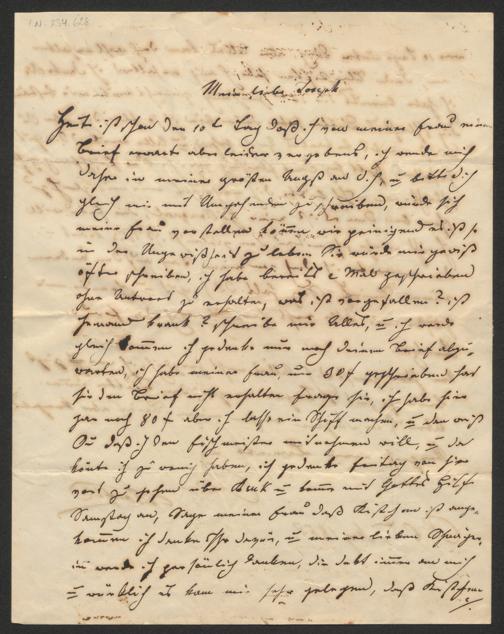 I.N. 334.628
Mein lieber Joseph
Heut ist schon der 10te Tag daß ich von meiner Frau einen
Brief erwarte aber leider vergebens, ich wende mich
daher in meiner größten Angst an dich, u bitte dich
gleich mir mit Umgehenden zu schreiben, würde sich
meine Frau vorstellen können, wie peinigend es ist so
in der Ungewißheit zu leben Sie würde mir gewiß
öfter schreiben, ich habe bereits 2 Mal geschrieben
ohne Antwort zu erhalten, was ist vorgefallen? ist
jemand krank? schreibe mir Alles, u ich werde
gleich kommen ich gedenke nur noch deinen Brief abzu-
warten, ich habe meiner Frau, um 30 f geschrieben hat
sie den Brief nicht erhalten frage sie, ich habe hier
zwar noch 80 f aber ich lasse ein Schiff machen, u da
Du daß ich den Fischmeister mitnehmen will, u da
könnte ich zu wenig haben, ich gedenke Freitag von hier
fort zu gehen über u komme mit Gottes Hilfe
Samstag an, Sage meiner Frau daß Kistchen ist ange-
kommen ich danke Ihr dafür, u meiner lieben Schwäger-
in werde ich persönlich danken, die denkt immer an mich
u wirklich es kam mir sehr gelegen, daß Kistchen